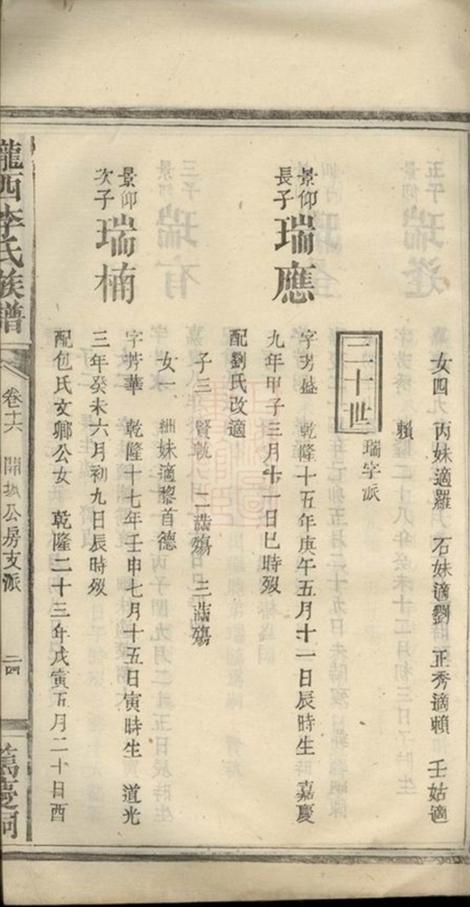 女四 丙妹適羅 石妹適劉 正秀適賴 壬姑適
賴
二十世
瑞字派
景仰長子 瑞應
字芳盛 乾隆十五年庚午五月十一日辰時生 嘉慶
九年甲子三月十一日巳時歿
配劉氏改適
子三 賢毓 二喆殤 三喆殤
女一 細妹適黎首德
景仰次子 瑞楠
字芳華 乾隆十七年壬申七月十五日寅時生 道光
三年癸未六月初九日辰時歿
配包氏文卿公女 乾隆二十三年戊寅五月二十日酉
隴西李氏族譜
卷十六 開城公房支派
二四
萬慶祠